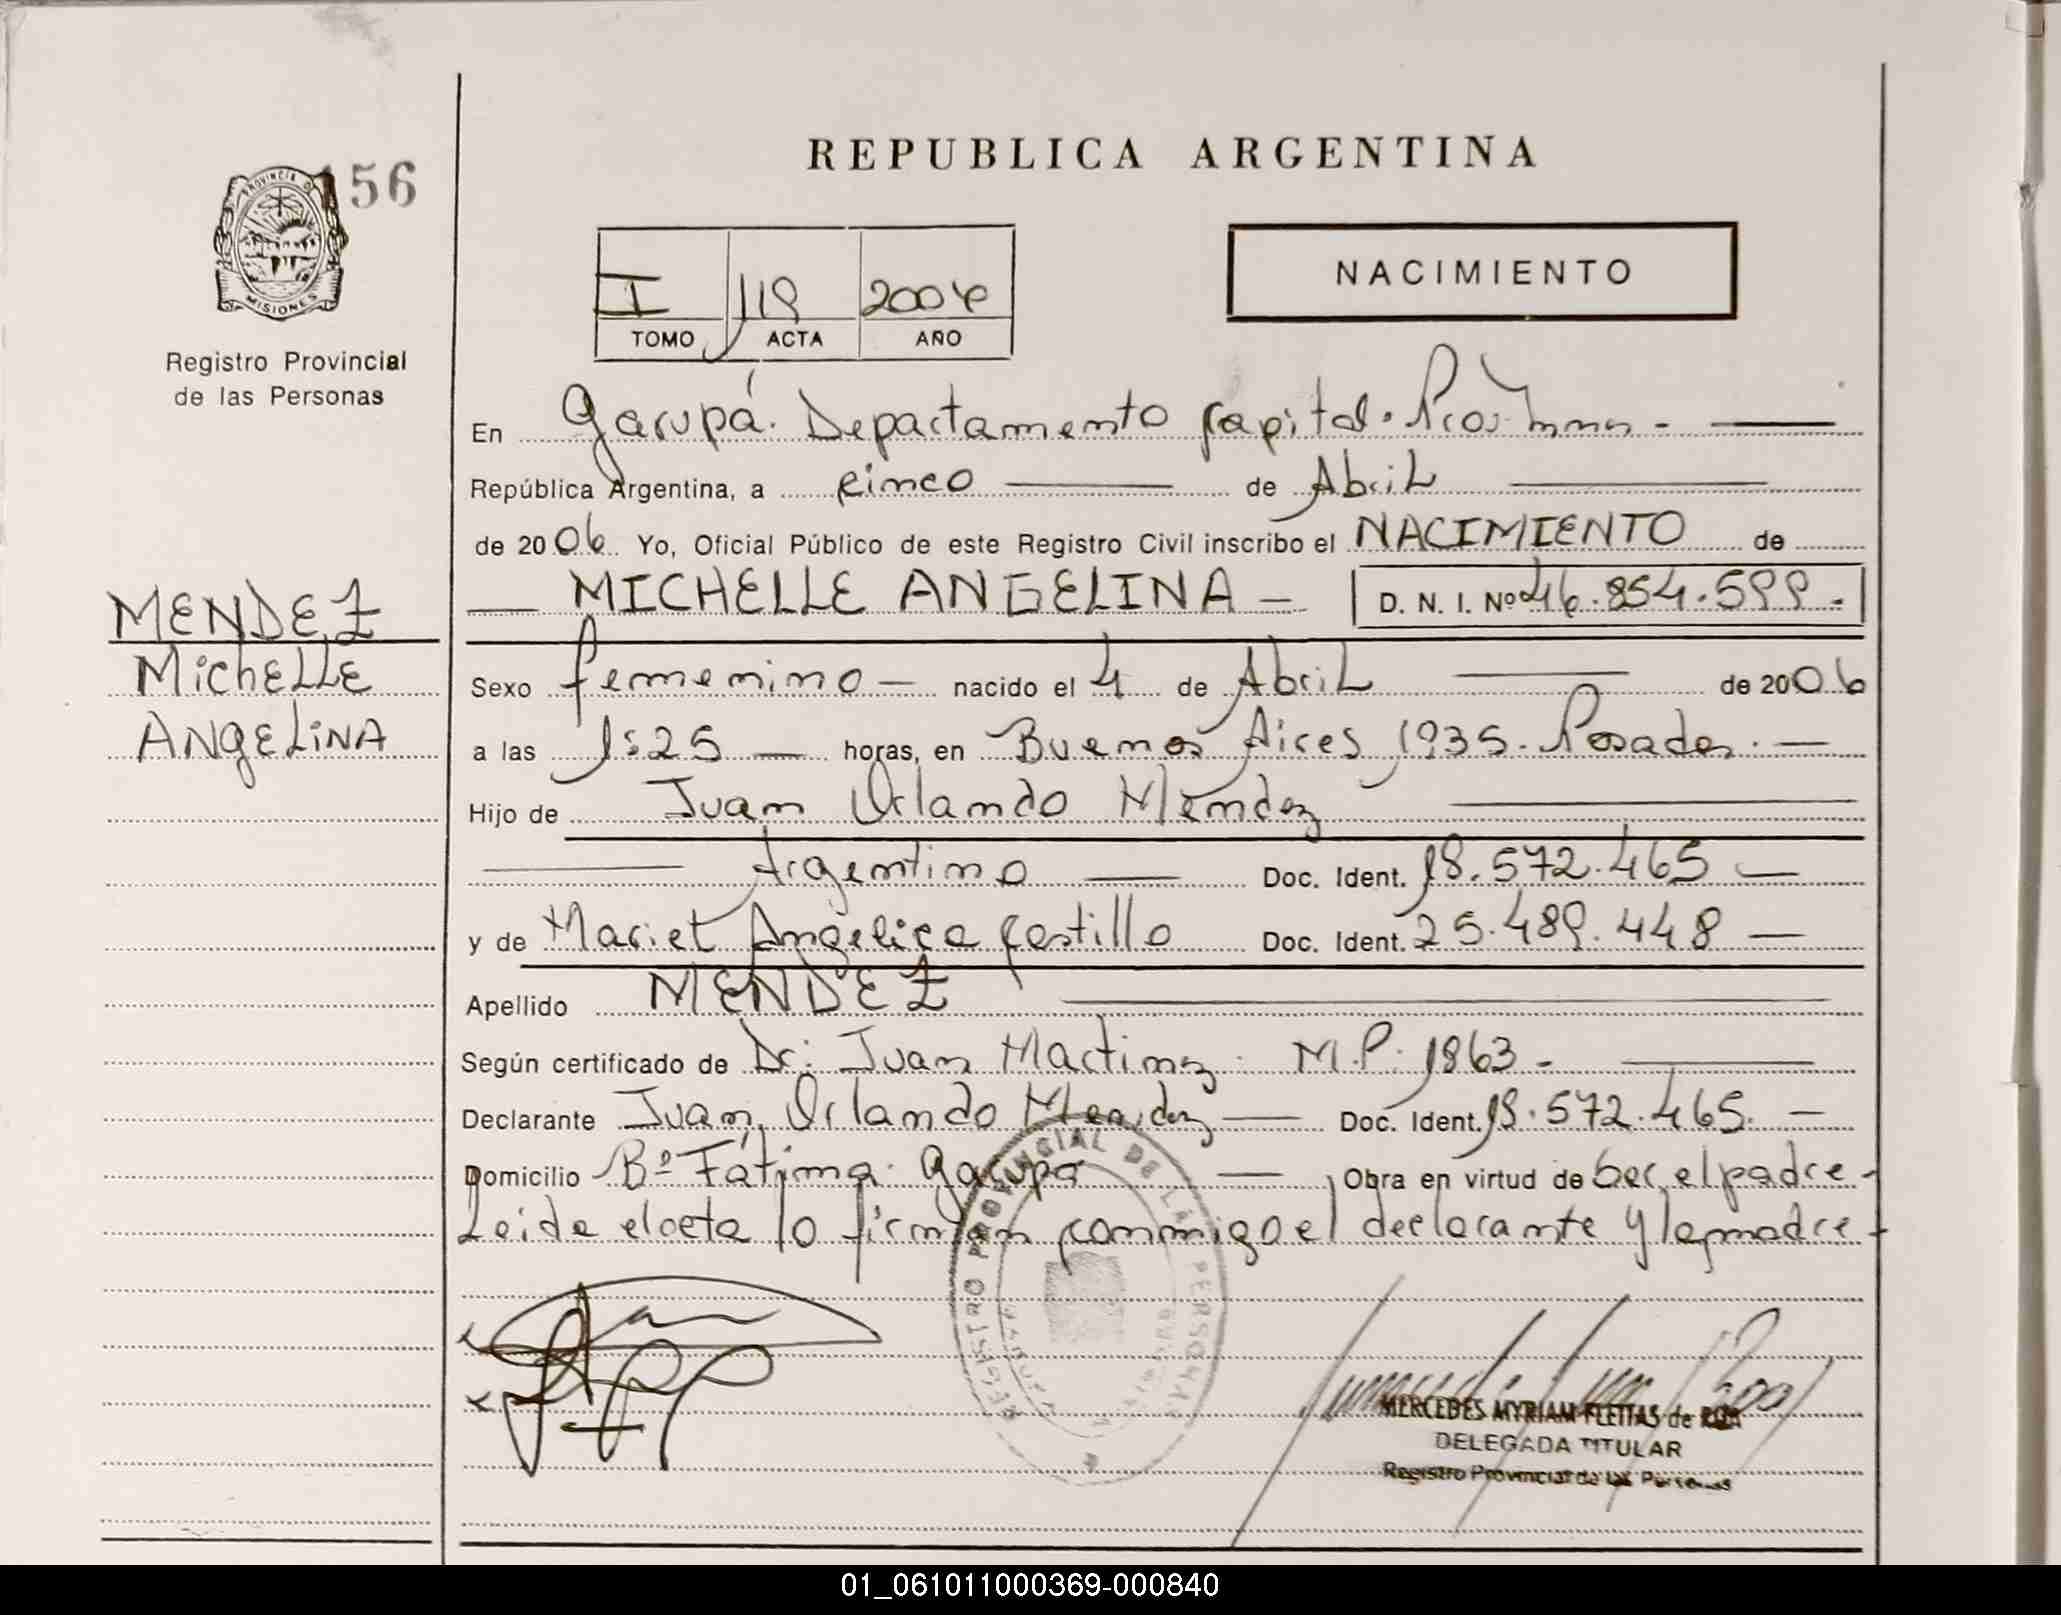 REPUBLICA ARGENTINA
156
PROVINCIA DE
MISIONES
Registro Provincial
de las Personas
I 119
TOMO ACTA AÑO
NACIMIENTO
En Garupá. Departamento Capital.
República Argentina, a Cinco de Abril
de 2006 Yo, Oficial Público de este Registro Civil inscribo el NACIMIENTO de
MICHELLE ANGELINA — D. N. I. Nº 46.854.599.
MENDEZ
MichELLE
ANgELiNA
Sexo femenino — nacido el 4 de Abril de 2006
a las horas, en Buenos Aires 1935. Posadas. —
Hijo de Juan Orlando Mendez
Argentino Doc. Ident. 18.572.465 —
y de Mariet Angelica Castillo Doc. Ident. 25.489.448 —
Apellido MENDEZ
Según certificado de Dr: Juan Martinez. M.P. 1863 -
Declarante Juan Orlando Mendez — Doc. Ident. 18.572.465. —
Domicilio Bº Fátima. Garupá — Obra en virtud de ser el padre -
Leida el acta lo firman conmigo el declarante y la madre -
REGISTRO PROVINCIAL DE LAS PERSONAS
MERCEDES MYRIAM FLEITAS de ROA
DELEGADA TITULAR
Registro Provincial de las Personas
01_061011000369-000840